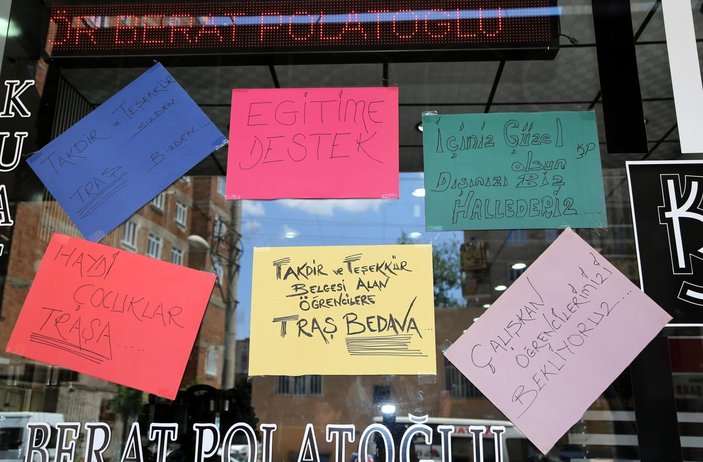 DR BERAT POLATOĞLU
TAKDİR ve TEŞEKKÜR
SİZDEN
TRAŞ BİZDEN...
EGİTİME
DESTEK
İçiniz Güzel
olsun
Dışınızı Biz
HALLEDERİZ...
HAYDİ
ÇOCUKLAR
TRAŞA....
TAKDİR ve TEŞEKKÜR
BELGESİ ALAN
ÖĞRENCİLERE
TRAŞ BEDAVA...
ÇALIŞKAN
ÖĞRENCİLERİMİZİ
BEKLİYORUZ...
BERAT POLATOĞLU